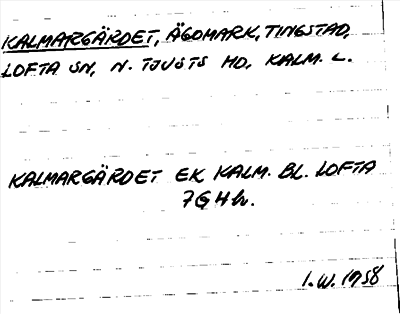 KALMARGÄRDET, ÄGOMARK, TINGSTAD,
LOFTA SN, N. TJUSTS HD, KALM. L.
KALMARGÄRDET EK KALM. BL. LOFTA
7G4h.
I.W. 1958